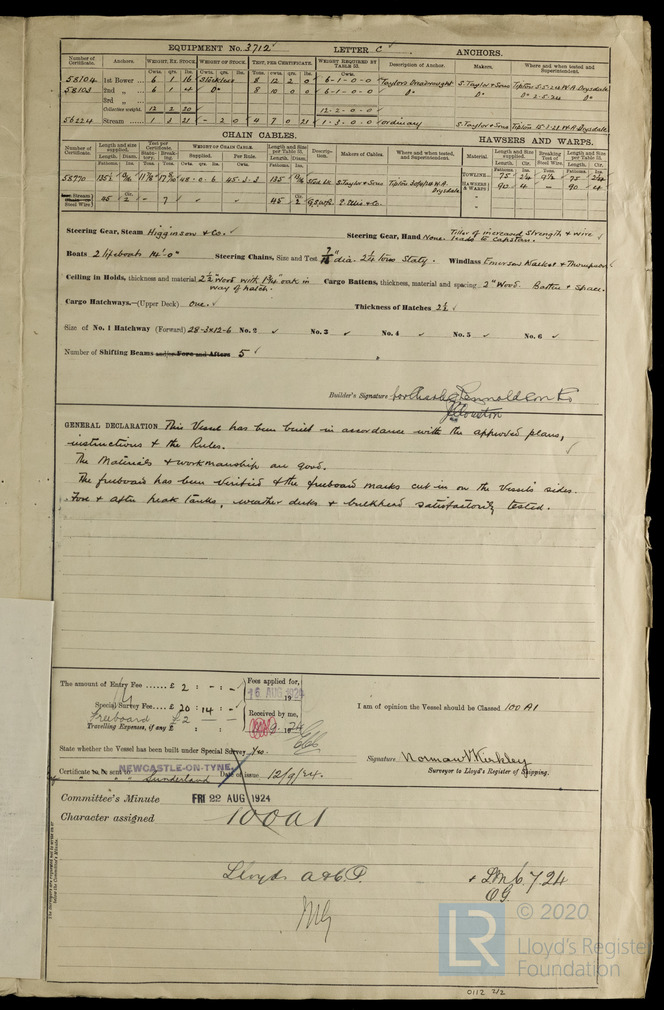 EQUIPMENT No. 3712 LETTER C ANCHORS.
Number of Certificate. Anchors. WEIGHT, EX. STOCK. WEIGHT OF STOCK. TEST, PER CERTIFICATE. WEIGHT REQUIRED BY TABLE 53. Description of Anchor. Makers. Where and when tested and Superintendent.
58104 1st Bower 6 1 16 Stockless 8 12 2 0 6-1-0-0 Taylor's Dreadnought S. Taylor & Sons Tipton 5.5.24 W.A. Drysdale
58103 2nd " 6 1 4 Do 8 10 0 0 6-1-0-0 Do Do Do 2.5.24 Do
3rd "
Collective weight. 12 2 20 12-2-0-0
56224 Stream 1 3 21 - 2 0 4 7 0 21 1-3-0-0 ordinary S. Taylor & Sons Tipton 15.1.21 W.A. Drysdale
CHAIN CABLES. HAWSERS AND WARPS.
Number of Certificate. Length and size supplied. Test per Certificate. WEIGHT OF CHAIN CABLE. Length and Size per Table 53. Description. Makers of Cables. Where and when tested, and Superintendent. Material. Length and Size supplied. Breaking Test of Steel Wire. Length and Size per Table 53.
58770 135 48-0-6 45-3-3 135 Stud link S. Taylor & Sons Tipton W.A. Drysdale TOWLINE 75 2¾ 75 2¾
HAWSERS & WARPS 90 4 90 4
Steel Wire 45 2 - 7 45 2 G.S.W.R.
Steering Gear, Steam Higginson & Co. Steering Gear, Hand None. Tiller of increased strength & wire leads to capstan.
Boats 2 lifeboats 14'-0" Steering Chains, Size and Test dia. 2¼ tons Staty. Windlass Emerson Walker & Thompson
Ceiling in Holds, thickness and material 2½" Wood with 1¾" oak in way of hatch. Cargo Battens, thickness, material and spacing 2" Wood. Batten & Space.
Cargo Hatchways.—(Upper Deck) One. Thickness of Hatches 2½
Size of No. 1 Hatchway (Forward) 28-3x12-6 No. 2 No. 3 No. 4 No. 5 No. 6
Number of Shifting Beams and/or Fore and Afters 5
Builder's Signature for Charles Rennoldson & Co
GENERAL DECLARATION This Vessel has been built in accordance with the approved plans,
instructions & the Rules.
The Materials & workmanship are good.
The freeboard has been verified & the freeboard marks cut in on the Vessel's sides.
Fore & after peak tanks, weather decks & bulkhead satisfactorily tested.
The amount of Entry Fee ...... £ 2 : - : - Fees applied for,
16 AUG 1924
Special Survey Fee .... £ 20 : 14 : -
Freeboard £2
Travelling Expenses, if any £ : : Received by me,
I am of opinion the Vessel should be Classed 100 A1
State whether the Vessel has been built under Special Survey Yes.
Signature Norman V Kirkley
Surveyor to Lloyd's Register of Shipping.
Certificate to be sent to NEWCASTLE-ON-TYNE Date of issue 12/9/24.
Sunderland
Committee's Minute FRI 22 AUG 1924
Character assigned 100A1
Lloyds A & C.P. + LMC 7.24
O.G.
© 2020
LR
Lloyd's Register
Foundation
0112 2/2